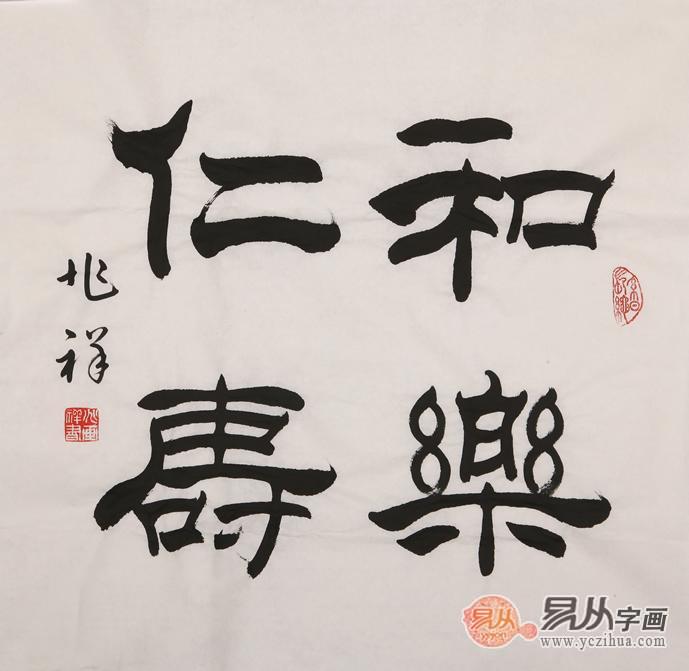 和樂
仁壽
兆祥
易从字画
www.yczihua.com